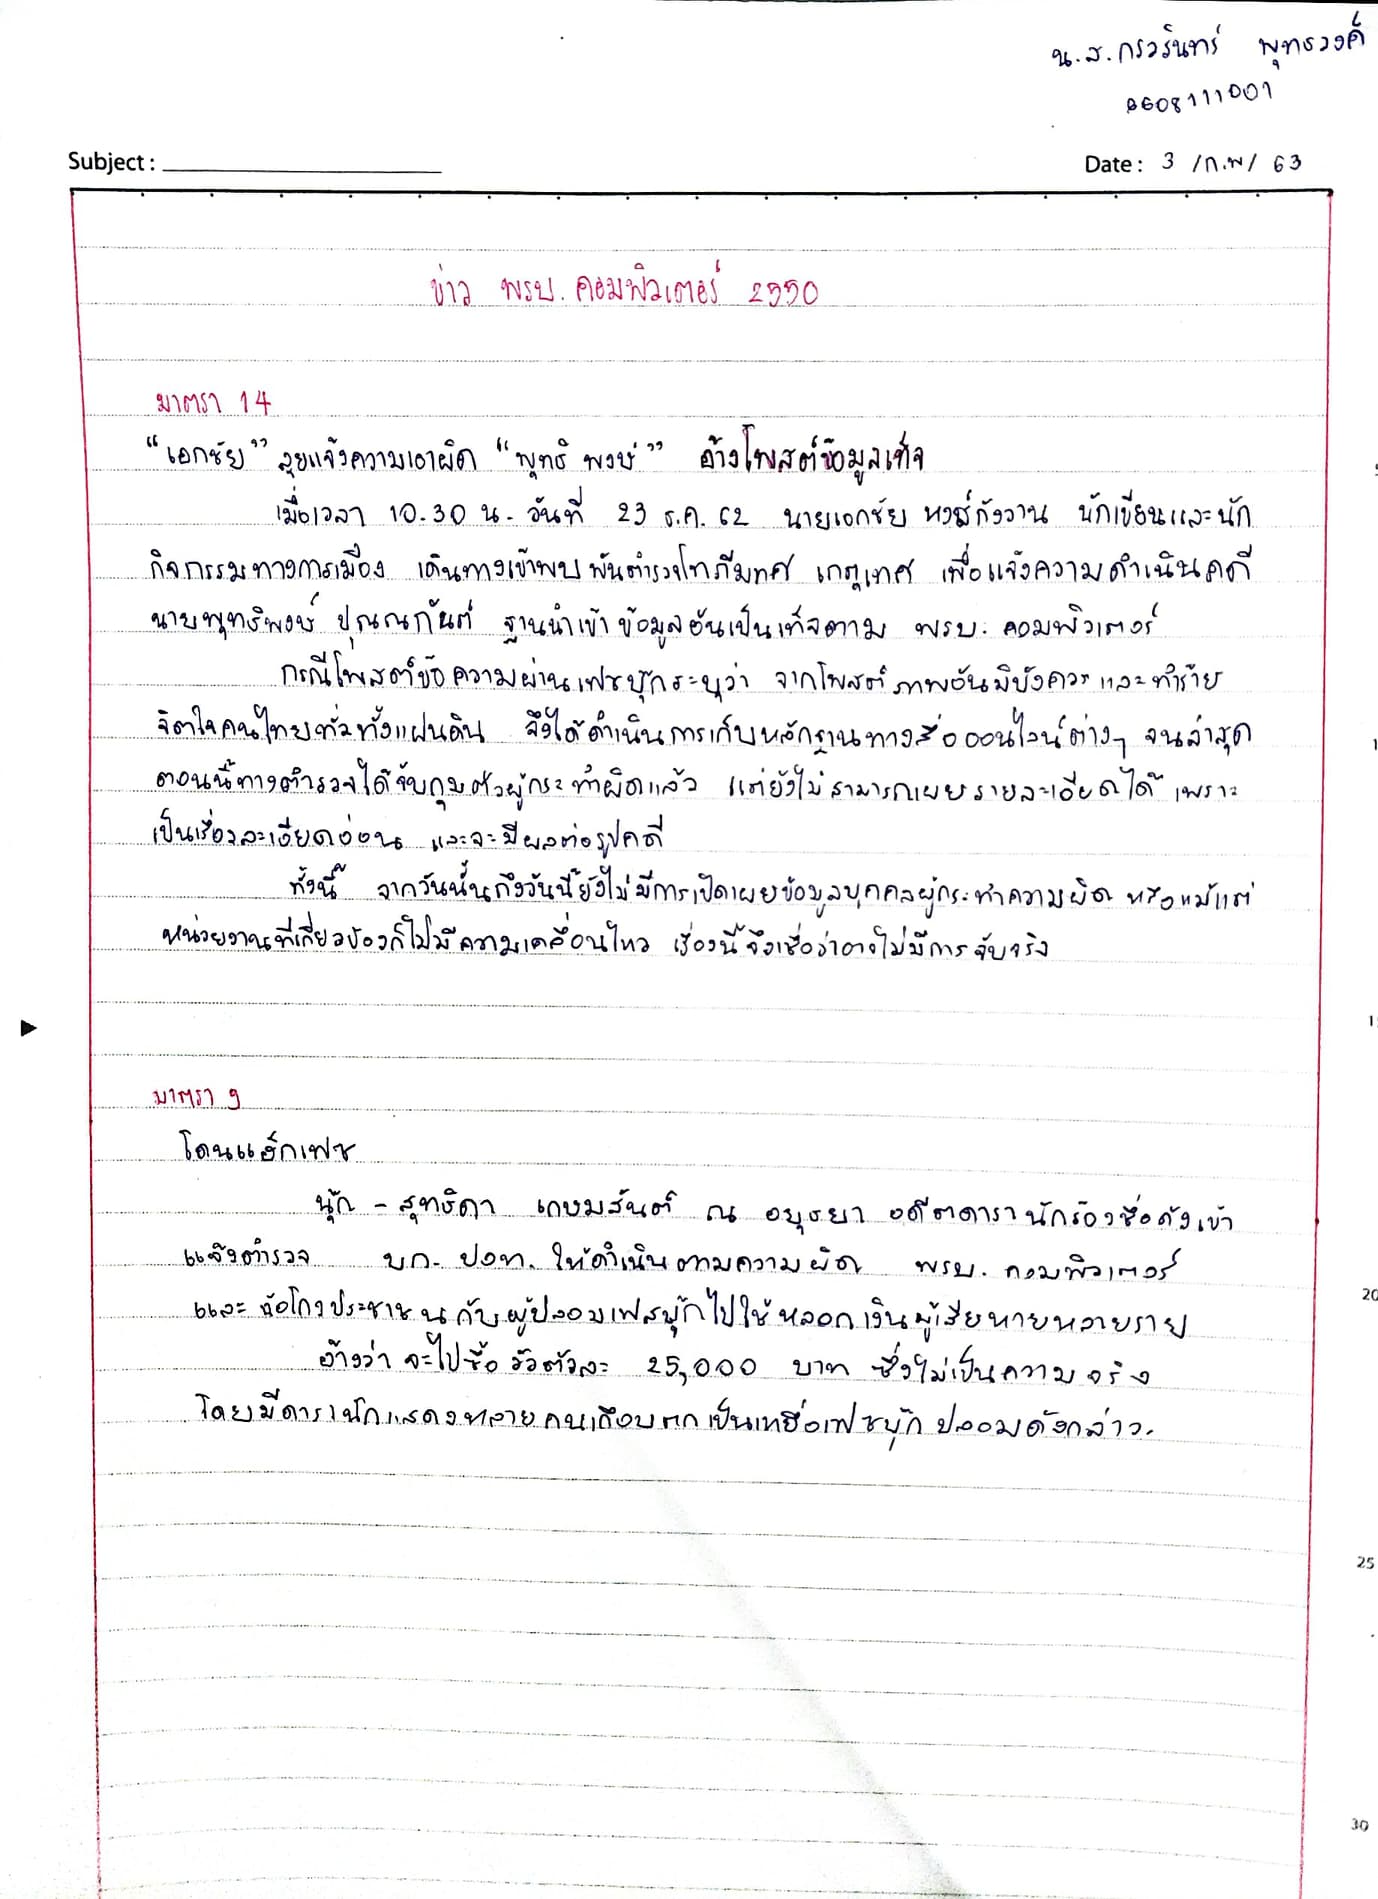 น.ส.กรวรินทร์ พุทธวงค์
6608111001
Subject :
Date : 3 /ก.พ/ 63
ข่าว พรบ.คอมพิวเตอร์ 2550
มาตรา 14
"เอกชัย" ลุยแจ้งความเอาผิด "พุทธิพงษ์" อ้างโพสต์ข้อมูลเท็จ
เมื่อเวลา 10.30 น. วันที่ 23 ธ.ค. 62 นายเอกชัย หงส์กังวาน นักเขียนและนัก
กิจกรรมทางการเมือง เดินทางเข้าพบพันตำรวจโทภีมทศ เกตุเทศ เพื่อแจ้งความดำเนินคดี
นายพุทธิพงษ์ ปุณณกันต์ ฐานนำเข้าข้อมูลอันเป็นเท็จตาม พรบ. คอมพิวเตอร์
กรณีโพสต์ข้อความผ่านเฟซบุ๊กระบุว่า จากโพสต์ภาพอันมิบังควรและทำร้าย
จิตใจคนไทยทั่วทั้งแผ่นดิน จึงได้ดำเนินการเก็บหลักฐานทางสื่อออนไลน์ต่างๆ จนล่าสุด
ตอนนี้ทางตำรวจได้จับกุมตัวผู้กระทำผิดแล้ว แต่ยังไม่สามารถเผยรายละเอียดได้ เพราะ
เป็นเรื่องละเอียดอ่อน และจะมีผลต่อรูปคดี
ทั้งนี้ จากวันนั้นถึงวันนี้ยังไม่มีการเปิดเผยข้อมูลบุคคลผู้กระทำความผิด หรือแม้แต่
หน่วยงานที่เกี่ยวข้องก็ไม่มีความเคลื่อนไหว เรื่องนี้จึงเชื่อว่าอาจไม่มีการจับจริง
มาตรา 9
โดนแฮ็กเฟซ
นุ๊ก - สุทธิดา เกษมสันต์ ณ อยุธยา อดีตดารานักร้องชื่อดังเข้า
แจ้งตำรวจ บก. ปอท. ให้ดำเนินตามความผิด พรบ. คอมพิวเตอร์
และฉ้อโกงประชาชนกับผู้ปลอมเฟสบุ๊กไปใช้หลอกเงินผู้เสียหายหลายราย
อ้างว่าจะไปซื้อวัวตัวละ 25,000 บาท ซึ่งไม่เป็นความจริง
โดยมีดารานักแสดงหลายคนเกือบตกเป็นเหยื่อเฟซบุ๊กปลอมดังกล่าว.
20
25
30